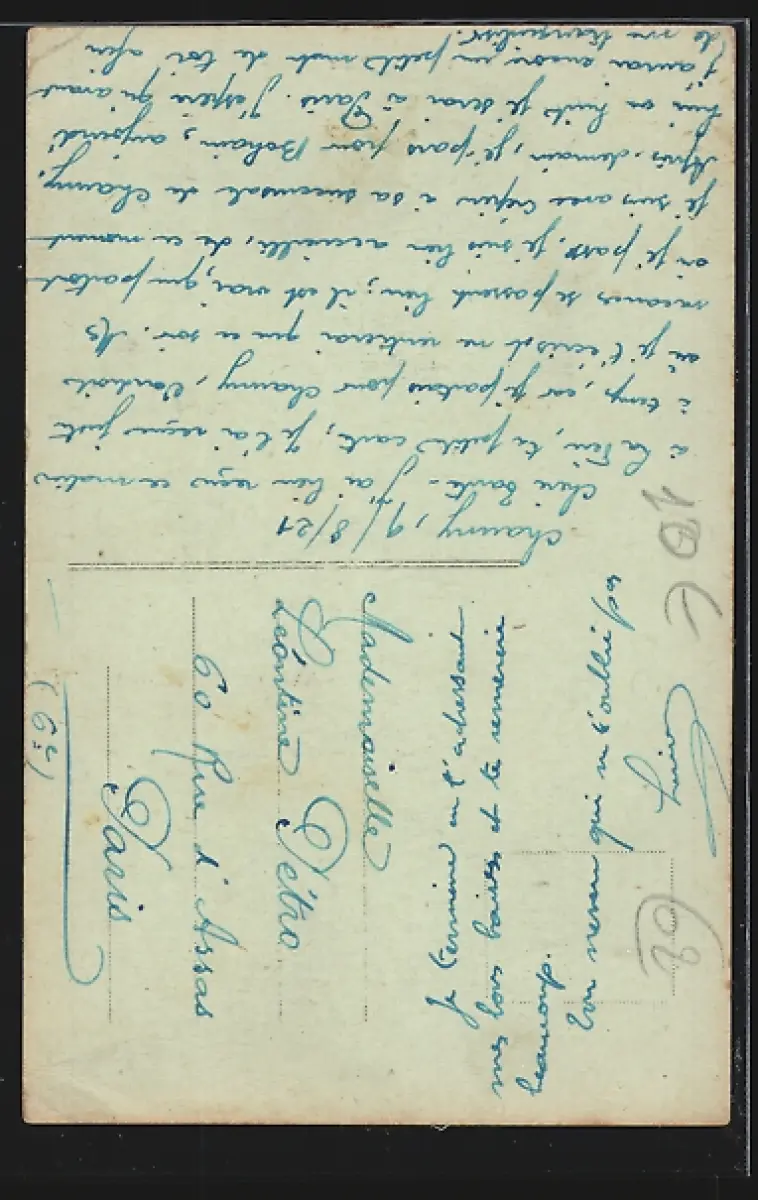 Chauny, 9/8/21
Chère Tante - J'ai bien reçu ce matin
à la Fein, ta petite carte, je l'ai reçue juste
à temps, car je partais pour Chauny, l'endroit
où je t'écris et ne rentrerai que ce soir. Mes
vacances se passent bien; il est vrai, que partout
où je passe, je suis bien accueilli, de ce moment
je suis avec Crépin à sa succursale de Chauny.
Après-demain, je pars pour Bohain, aujourd'
hui en huit je serai à Paris. J'espère qu'avant
j'aurai encore un petit mot de toi afin
de me tranquiliser.
Je termine en t'adressant
mes bons baisers et te remercie
beaucoup.
Ton neveu qui ne t'oublie pas
Mademoiselle
Léontine Pétro
60 Rue d'Assas
Paris
(6e)
10 €
62